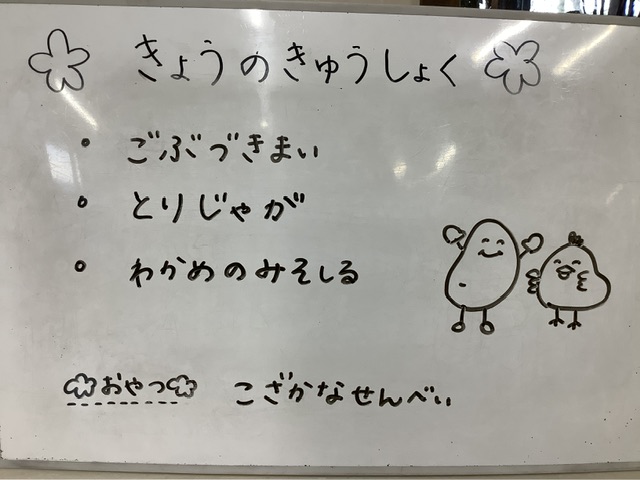 きょうのきゅうしょく
・ ごぶづきまい
・ とりじゃが
・ わかめのみそしる
おやつ こざかなせんべい